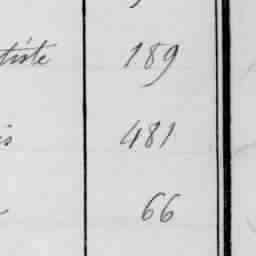 tiste 189
is 481
66